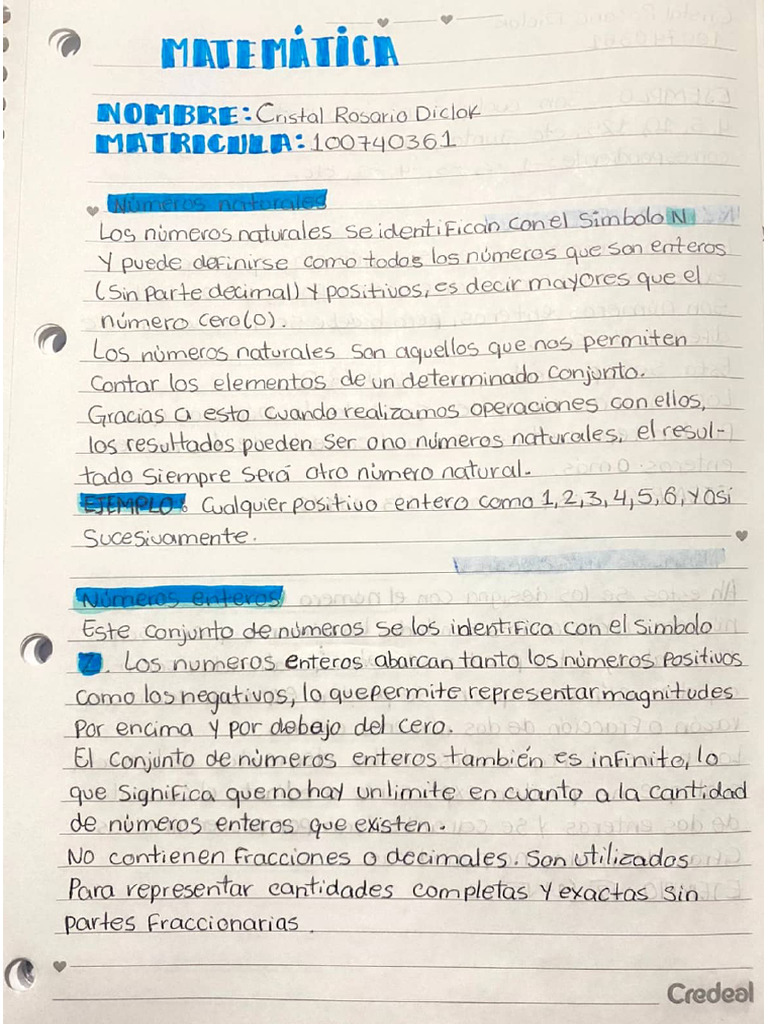 MATEMÁTICA
NOMBRE: Cristal Rosario Diclok
MATRICULA: 100740361
Números naturales
Los números naturales se identifican con el simbolo N
Y puede definirse como todos los números que son enteros
(Sin parte decimal) Y positivos, es decir mayores que el
número cero(0).
Los números naturales son aquellos que nos permiten
Contar los elementos de un determinado conjunto.
Gracias a esto cuando realizamos operaciones con ellos,
los resultados pueden ser o no números naturales, el resul-
tado siempre será otro número natural.
EJEMPLO: Cualquier positivo entero como 1, 2, 3, 4, 5, 6, Y asi
Sucesivamente.
Números enteros
Este conjunto de números se los identifica con el simbolo
Z. Los numeros enteros abarcan tanto los números positivos
como los negativos, lo que permite representar magnitudes
Por encima y por debajo del cero.
El conjunto de números enteros también es infinito, lo
que significa que no hay un limite en cuanto a la cantidad
de números enteros que existen.
No contienen fracciones o decimales. Son utilizados
Para representar cantidades completas y exactas sin
partes fraccionarias.
Credeal